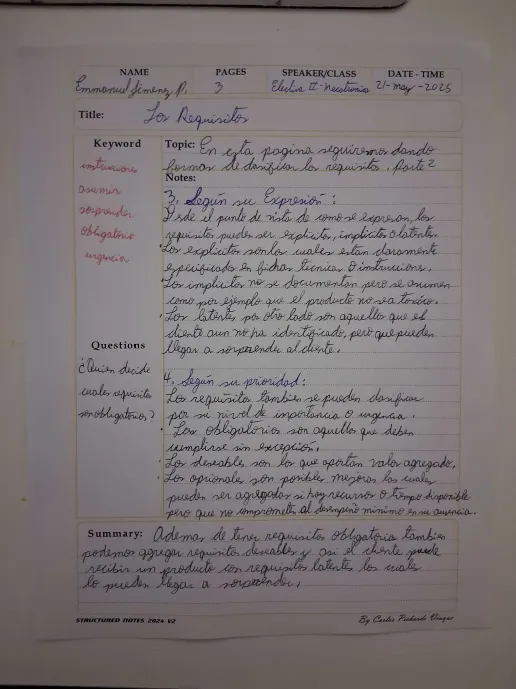 NAME PAGES SPEAKER/CLASS DATE - TIME
Emmanuel Jimenez P. 3 Electiva II- 21-may-2025
Title: Los Requisitos
Keyword
instrucciones
asumir
sorprender
obligatorio
urgencia
Topic: En esta pagina seguiremos dando
formas de clasificar los requisitos. Parte 2
Notes:
3. Según su Expresión:
Desde el punto de vista de como se expresan, los
requisitos pueden ser explicitos, implicitos o latentes.
• Los explicitos son los cuales estan claramente
especificados en fichas tecnicas o instrucciones.
• Los implicitos no se documentan pero se asumen
como por ejemplo que el producto no sea toxico.
• Los latentes por otro lado son aquellos que el
cliente aun no ha identificado, pero que pueden
llegar a sorprender al cliente.
Questions
¿Quien decide
cuales requisitos
son obligatorios?
4. Según su prioridad:
Los requisitos tambien se pueden clasificar
por su nivel de importancia o urgencia.
• Los obligatorios son aquellos que deben
cumplirse sin excepción.
• Los deseables son los que aportan valor agregado.
• Los opcionales son posibles mejoras las cuales
pueden ser agregadas si hay recursos o tiempo disponible
pero que no comprometen al desempeño minimo en su ausencia.
Summary: Ademas de tener requisitos obligatorios tambien
podemos agregar requisitos deseables y asi el cliente puede
recibir un producto con requisitos latentes los cuales
lo pueden llegar a sorprender.
STRUCTURED NOTES 2024 V2
By Carlos Pichardo Vargas